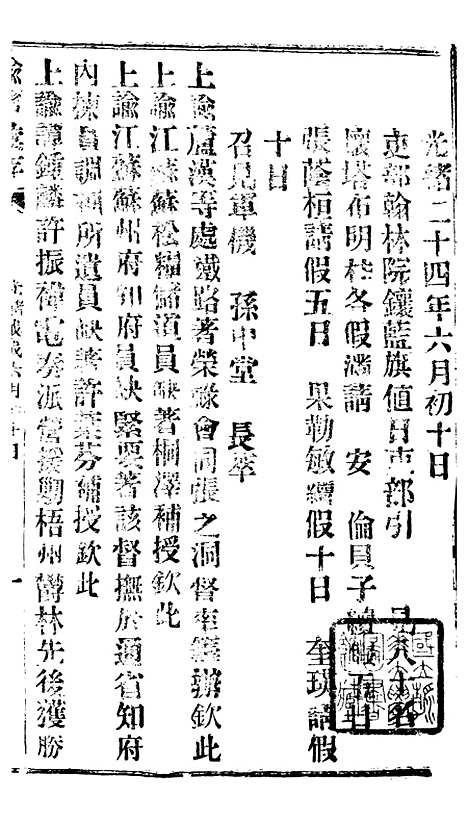 光緒二十四年六月初十日
吏部翰林院鑲藍旗值日吏部引 見八十名
懷塔布明桂各假滿請 安 倫貝子續假五日
張蔭桓請假五日 果勒敏續假十日 奎瑛請假
十日
召見軍機 孫中堂 長萃
上諭蘆漢等處鐵路著榮祿會同張之洞督率籌辦欽此
上諭江蘇蘇松糧儲道員缺著桐澤補授欽此
上諭江蘇蘇州府知府員缺緊要著該督撫於通省知府
內揀員調補所遺員缺著許葉芬補授欽此
上諭譚鍾麟許振禕電奏派營援勦梧州鬱林先後獲勝
諭摺彙存
光緒戊戌六月十日
一